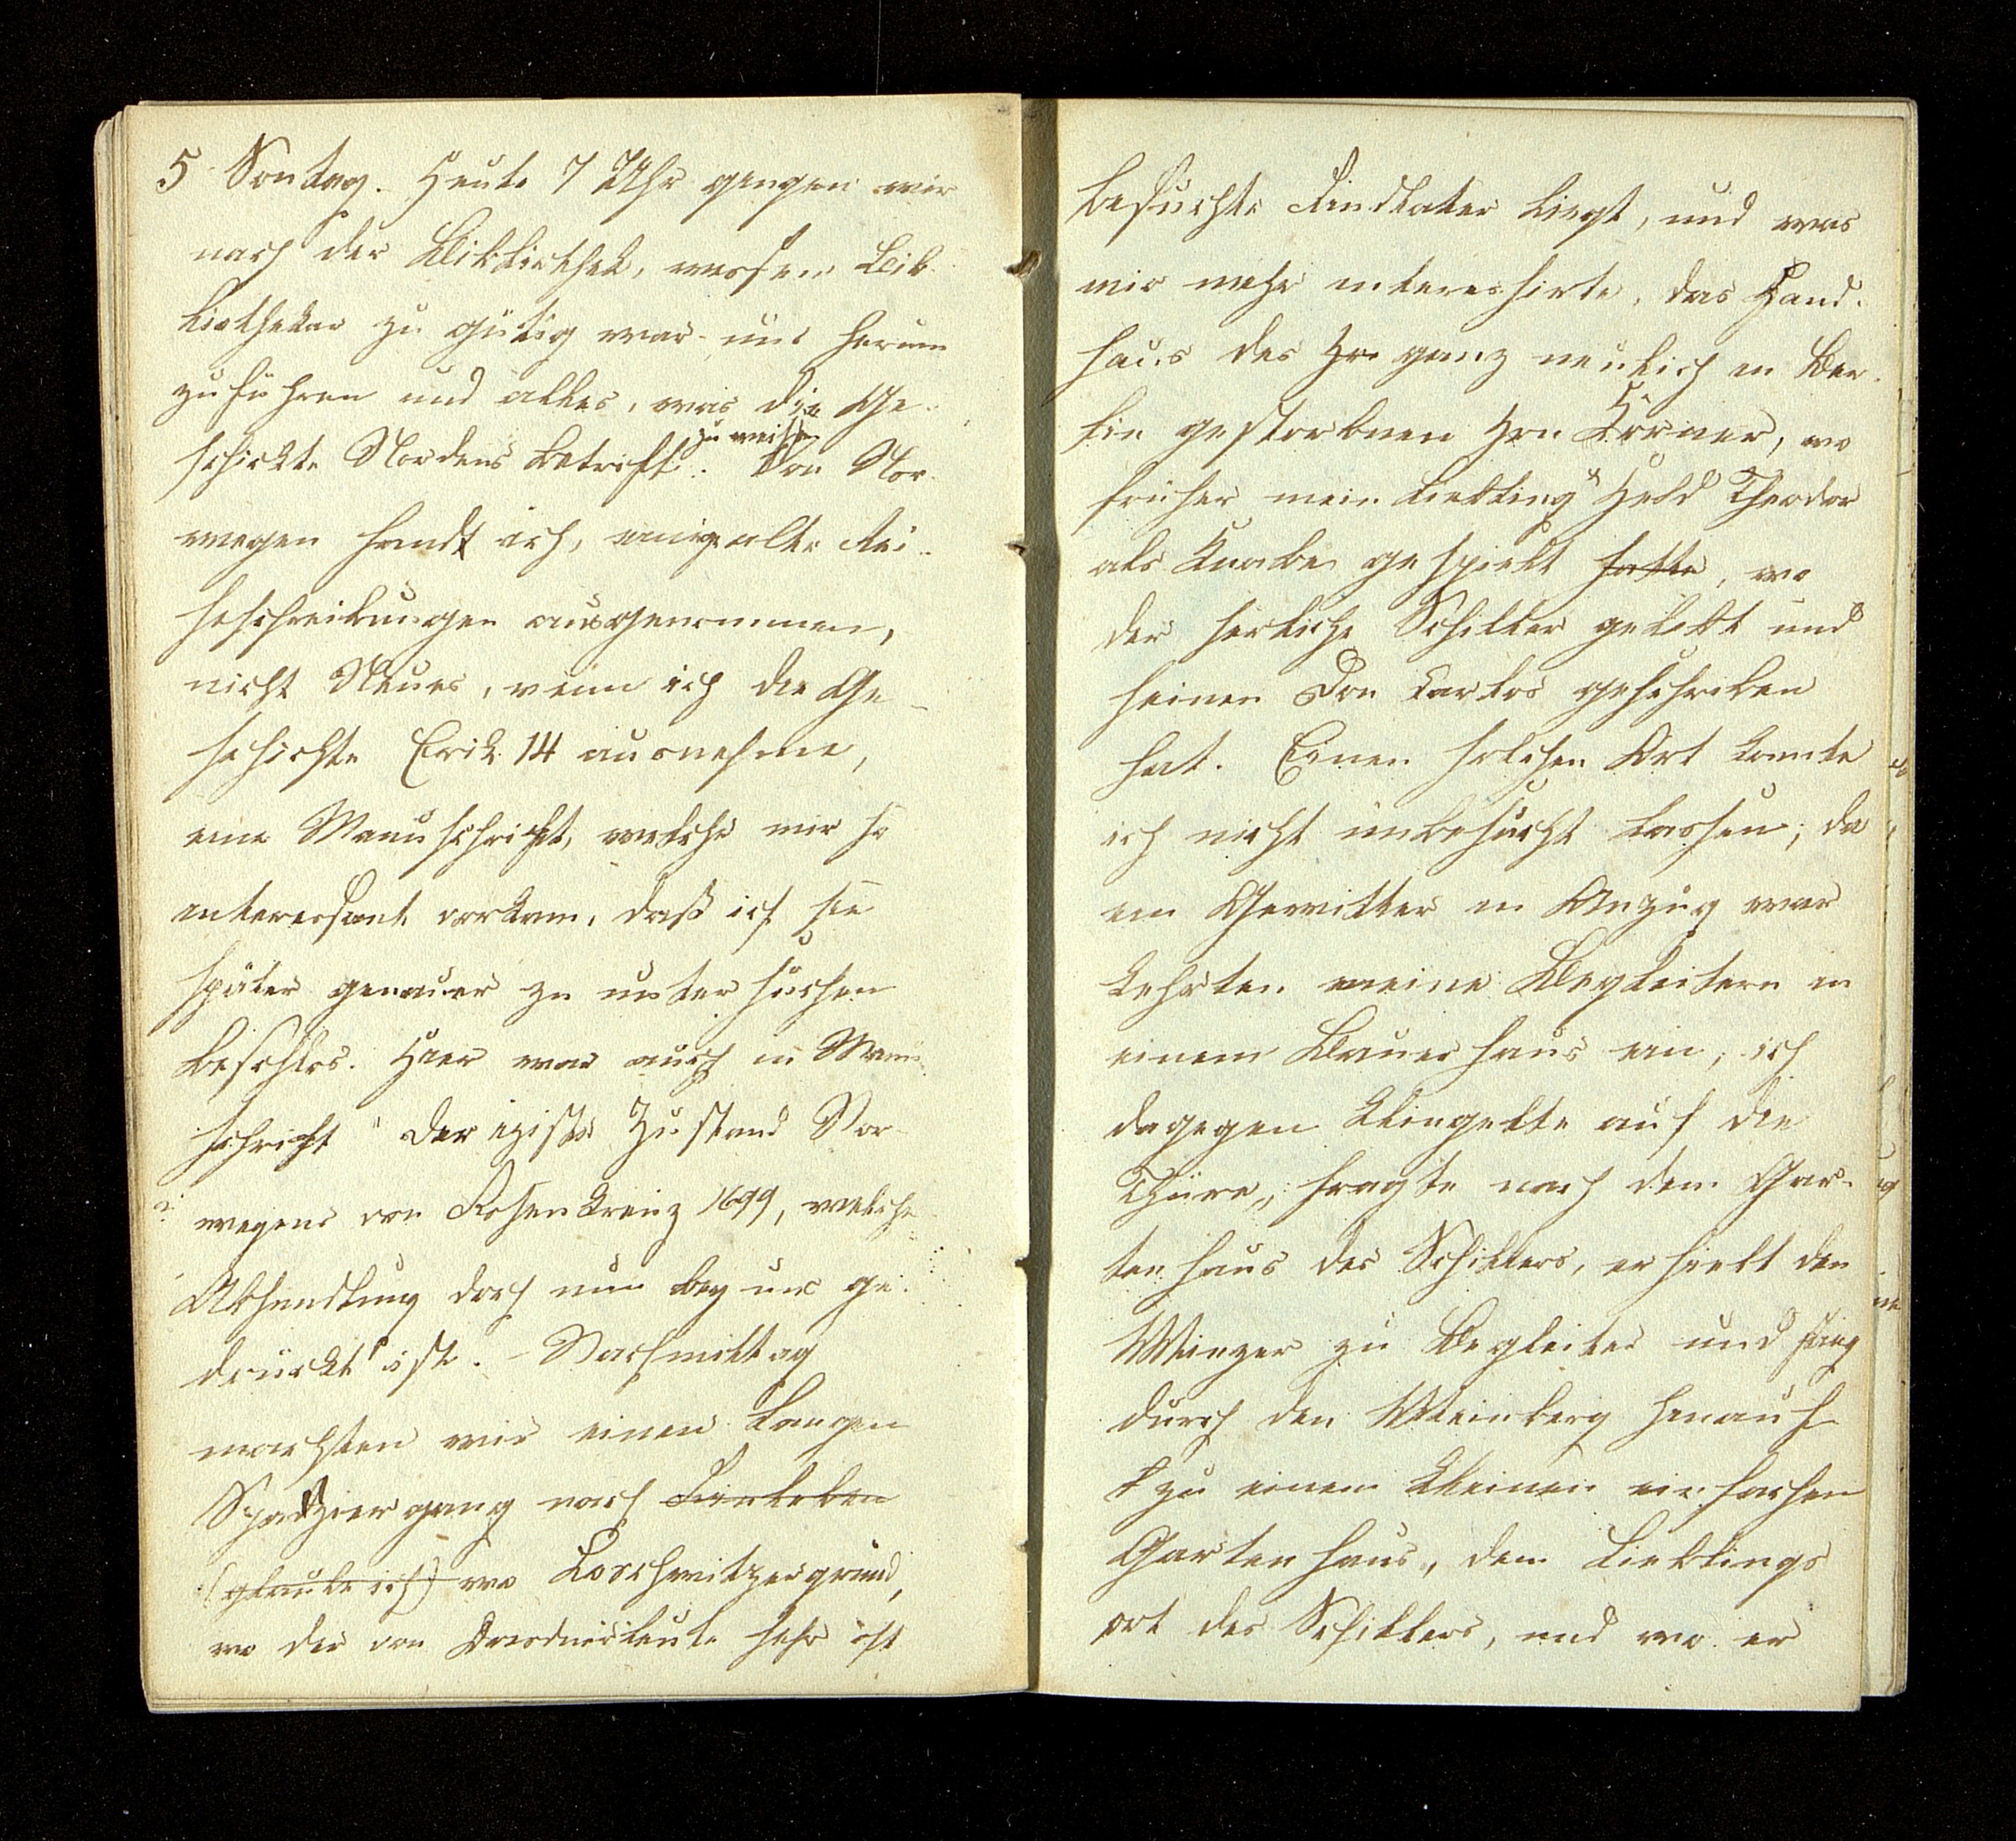 5 Sontag. Heute 7 Uhr gengen wir
nach der Bibliothek, wessen Bib¬
liothekar zu gütig war uns herum
zuführen und alles, was die Ge¬
schickte Nordens betrifft zu weisen. Von Nor¬
wegen fandt ich, einige alte Rei¬
seschreibungen ausgenommen,
nicht Neues, wenn ich die Ge¬
schichte Erik 14 ausnehme,
eine Manuschrift, welche mir so
interessant vorkam, daß ich sie
später genauer zu untersuchen
beschlos. Hier war auch in Manu¬
schrift "der iziste Zustand Nor¬
wegens von Rosenkreuz 1699, welche
Abhandlung doch nun bey uns ge¬
druckt ist. – Nachmittag
machten wir einen langen
Spadziergang nach
(glaube ich) wo Loschwitzergrund,
wo der von Dresdnerleute sehr oft
besuchte Findlater liegt, und was
mir mehr interessirte, das Land¬
haus des Hr ganz neulich in Ber¬
lin gestorbnen Hrn Körner, wo
früher mein Liebling's Held Theodor
als Knabe gespielt hatte, wo
der herliche Schiller gelebt und
seinen Don Carlos geschrieben
hat. Einen solchen Ort konnte
ich nicht unbesucht lassen; da
ein Gewitter in Anzug war
kehrten meine Begleitern in
einem Bauerhaus ein, ich
dagegen klingelte auf die
Thüre, fragte nach dem Gar¬
tenhaus des Schillers, erhielt den
Winzer zu Begleiter und stieg
durch den Weinberg hinauf
zu einem kleinen einfachen
Gartenhaus, dem Lieblings
ort des Schillers, und wo er